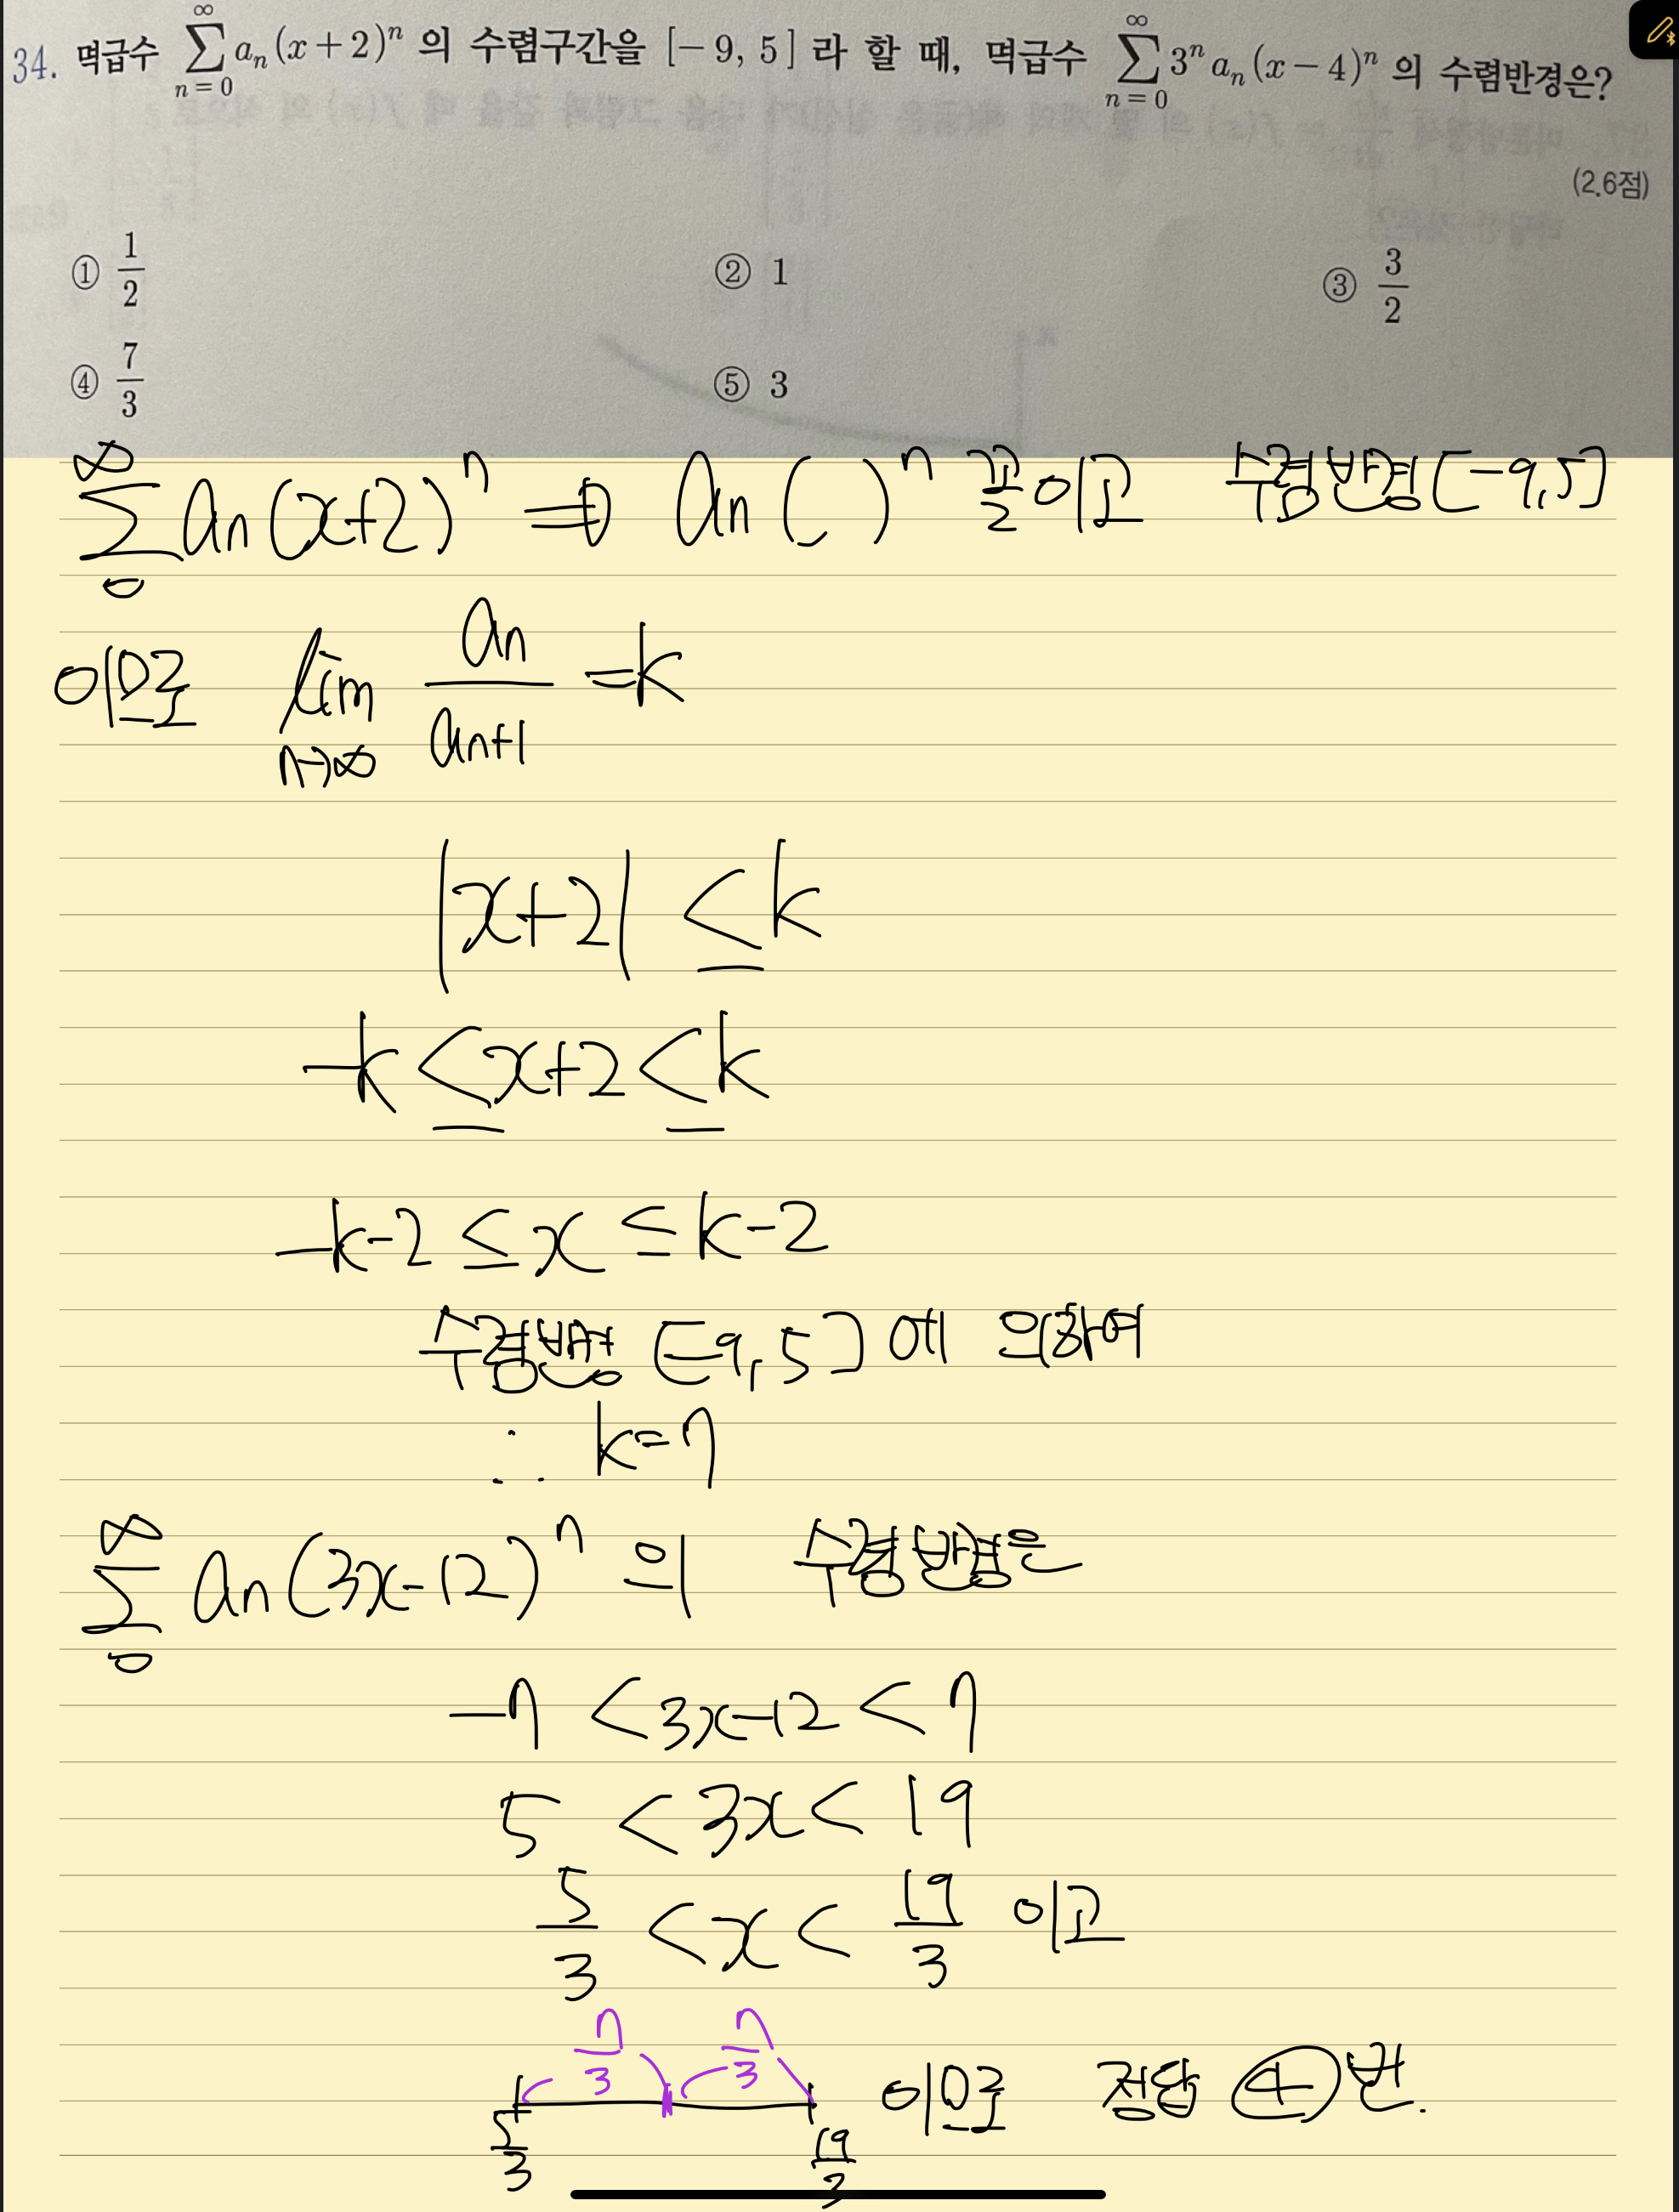 34. 멱급수 $\sum_{n=0}^{\infty} a_n (x+2)^n$ 의 수렴구간을 [-9, 5] 라 할 때, 멱급수 $\sum_{n=0}^{\infty} 3^n a_n (x-4)^n$ 의 수렴반경은?
(2.6점)
① 1/2 ② 1 ③ 3/2
④ 7/3 ⑤ 3
$\sum_{0}^{\infty} a_n (x+2)^n$ ⇒ $a_n ( \ )^n$ 꼴이고 수렴반경 [-9, 5]
이므로 $\lim_{n→∞} \frac{a_n}{a_{n+1}} = k$
|x+2| ≤ k
-k ≤ x+2 ≤ k
-k-2 ≤ x ≤ k-2
수렴반경 [-9, 5] 에 의하여
∴ k=7
$\sum_{0}^{\infty} a_n (3x-12)^n$ 의 수렴반경은
-7 < 3x-12 < 7
5 < 3x < 19
5/3 < x < 19/3 이고
7/3 7/3
이므로 정답 ④ 번.
5/3 19/3